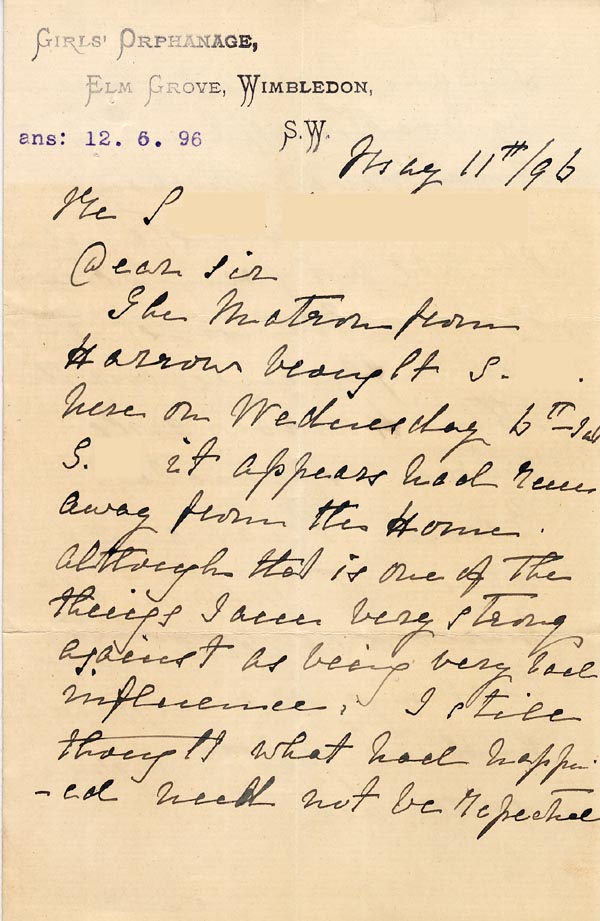 Girls' Orphanage,
Elm Grove, Wimbledon,
S.W.
ans: 12. 6. 96
May 11th/96
Mr S
Dear Sir
The Matron from
Harrow brought S.
here on Wednesday 6th Inst
S. it appears had run
away from the Home.
Although that is one of the
things I am very strong
against as being very bad
influence, I still
thought what had happen
-ed need not be repeated